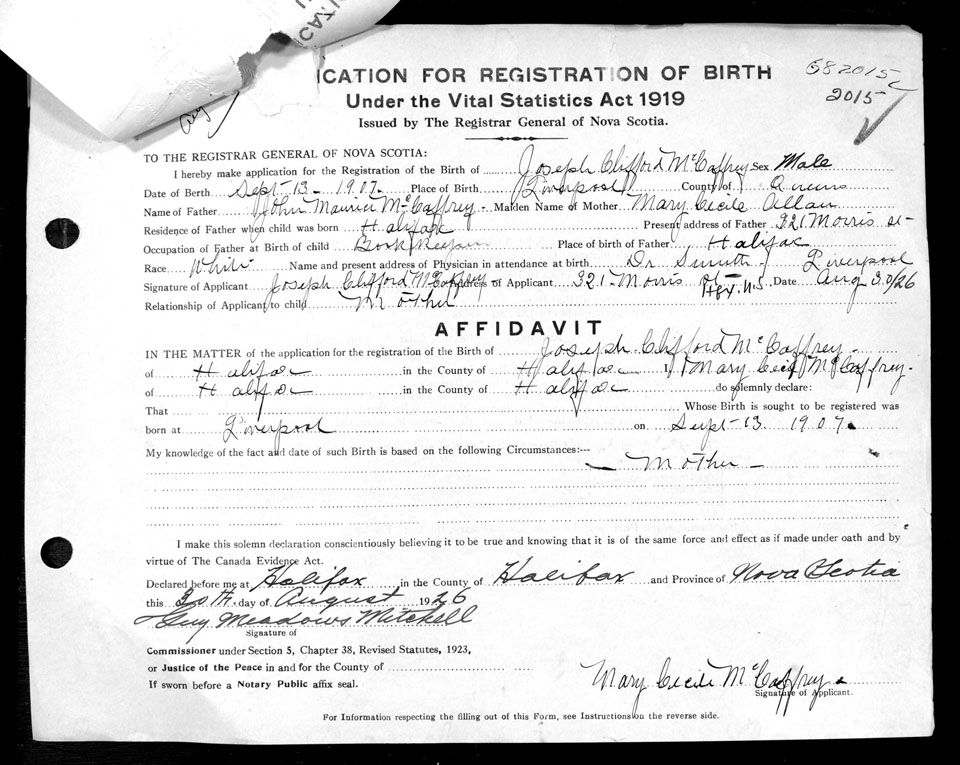 ICATION FOR REGISTRATION OF BIRTH
Under the Vital Statistics Act 1919
Issued by The Registrar General of Nova Scotia.
2015
TO THE REGISTRAR GENERAL OF NOVA SCOTIA:
I hereby make application for the Registration of the Birth of Joseph Clifford McCaffrey Sex Male
Date of Birth Sept 13 - 1907 Place of Birth Liverpool County of Queens
Name of Father John Maurice McCaffrey - Maiden Name of Mother Mary Cecile Allan
Residence of Father when child was born Halifax Present address of Father 321 Morris st-
Occupation of Father at Birth of child Book Keeper Place of birth of Father Halifax
Race White Name and present address of Physician in attendance at birth Dr Smith Liverpool
Signature of Applicant Joseph Clifford McCaffrey Address of Applicant 321- Morris st- Hfx. N.S Date Aug 30/26
Relationship of Applicant to child Mother
AFFIDAVIT
IN THE MATTER of the application for the registration of the Birth of Joseph Clifford McCaffrey -
of Halifax in the County of Halifax I, Mary Cecil McCaffrey.
of Halifax in the County of Halifax do solemnly declare:
That Whose Birth is sought to be registered was
born at Liverpool on Sept-13 1907.
My knowledge of the fact and date of such Birth is based on the following Circumstances:--
- Mother -
I make this solemn declaration conscientiously believing it to be true and knowing that it is of the same force and effect as if made under oath and by
virtue of The Canada Evidence Act.
Declared before me at Halifax in the County of Halifax and Province of Nova Scotia
this 30th. day of August 1926
Guy Meadows Mitchell
Signature of
Commissioner under Section 5, Chapter 38, Revised Statutes, 1923,
or Justice of the Peace in and for the County of
If sworn before a Notary Public affix seal.
Mary Cecile McCaffrey.
Signature of Applicant.
For Information respecting the filling out of this Form, see Instructions on the reverse side.